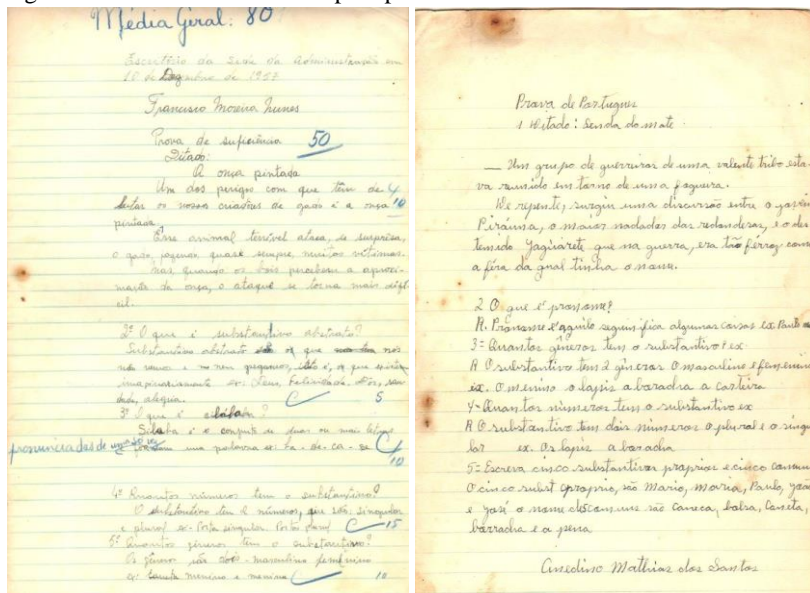 Média Giral: 80
Escritório da Sede da Administração em
10 de Dezembro de 1957
Francisco Moreira Nunes
Prova de suficiência 50
Ditado:
A onça pintada
Um dos perigos com que têm de 4
lutar os nossos criadores de gado é a onça 10
pintada.
Esse animal terrível ataca, de surpresa,
o gado, fazendo quase sempre, muitas vítimas.
mas quando os bois percebem a aproxi-
mação da onça, o ataque se torna mais difi-
cil.
2ª O que é substantivo abstrato?
Substantivo abstrato é o que nos
não vemos e nem pegamos, isto é, os que existem
ex: Deus, Felicidade, dor, sau-
dade, alegria. C 5
3ª O que é sílaba?
Sílaba é o conjunto de duas ou mais letras
pronunciadas de uma só vez uma palavra ex: ba-de-ca-sa C
10
4ª Quantos números tem o substantivo?
O substantivo tem 2 números, que são: singular
e plural ex- Porta singular. Portas plural C 15
5ª Quantos gêneros tem o substantivo?
Os gêneros são dois- masculino feminino
ex: menino e menina C 10
Prova de Portugues
1 Ditado: Senda do mate
— Um grupo de guerreiros de uma valente tribo esta-
va reunido em torno de uma fogueira.
De repente, surgiu uma discursão entre o jovem
Piraúna, o maior nadador das redondezas, e o des-
temido Jaguarete que na guerra, era tão ferroz como
a féra da qual tinha o nome.
2 O que é pronome?
R. Prôname é aquilo seguinifica algumas coisas ex Paulo
3= Quantos gêneros tem o substantivo? ex:
R O substantivo tem 2 gêneros O masculino e femenino
ex. O menino o lapis a baracha a carteira
4= Quantos números tem o substantivo ex
R O substantivo tem dois números o plural e o singu
lar ex. Os lapis a baracha
5= Escreva cinco substantivos proprios e cinco comuns
O cinco subst proprio, são Mario, Maria, Paulo, João
e José o nome dos comuns são caneca, bolsa, Caneta,
barracha e a pena
Anedino Mathias dos Santos